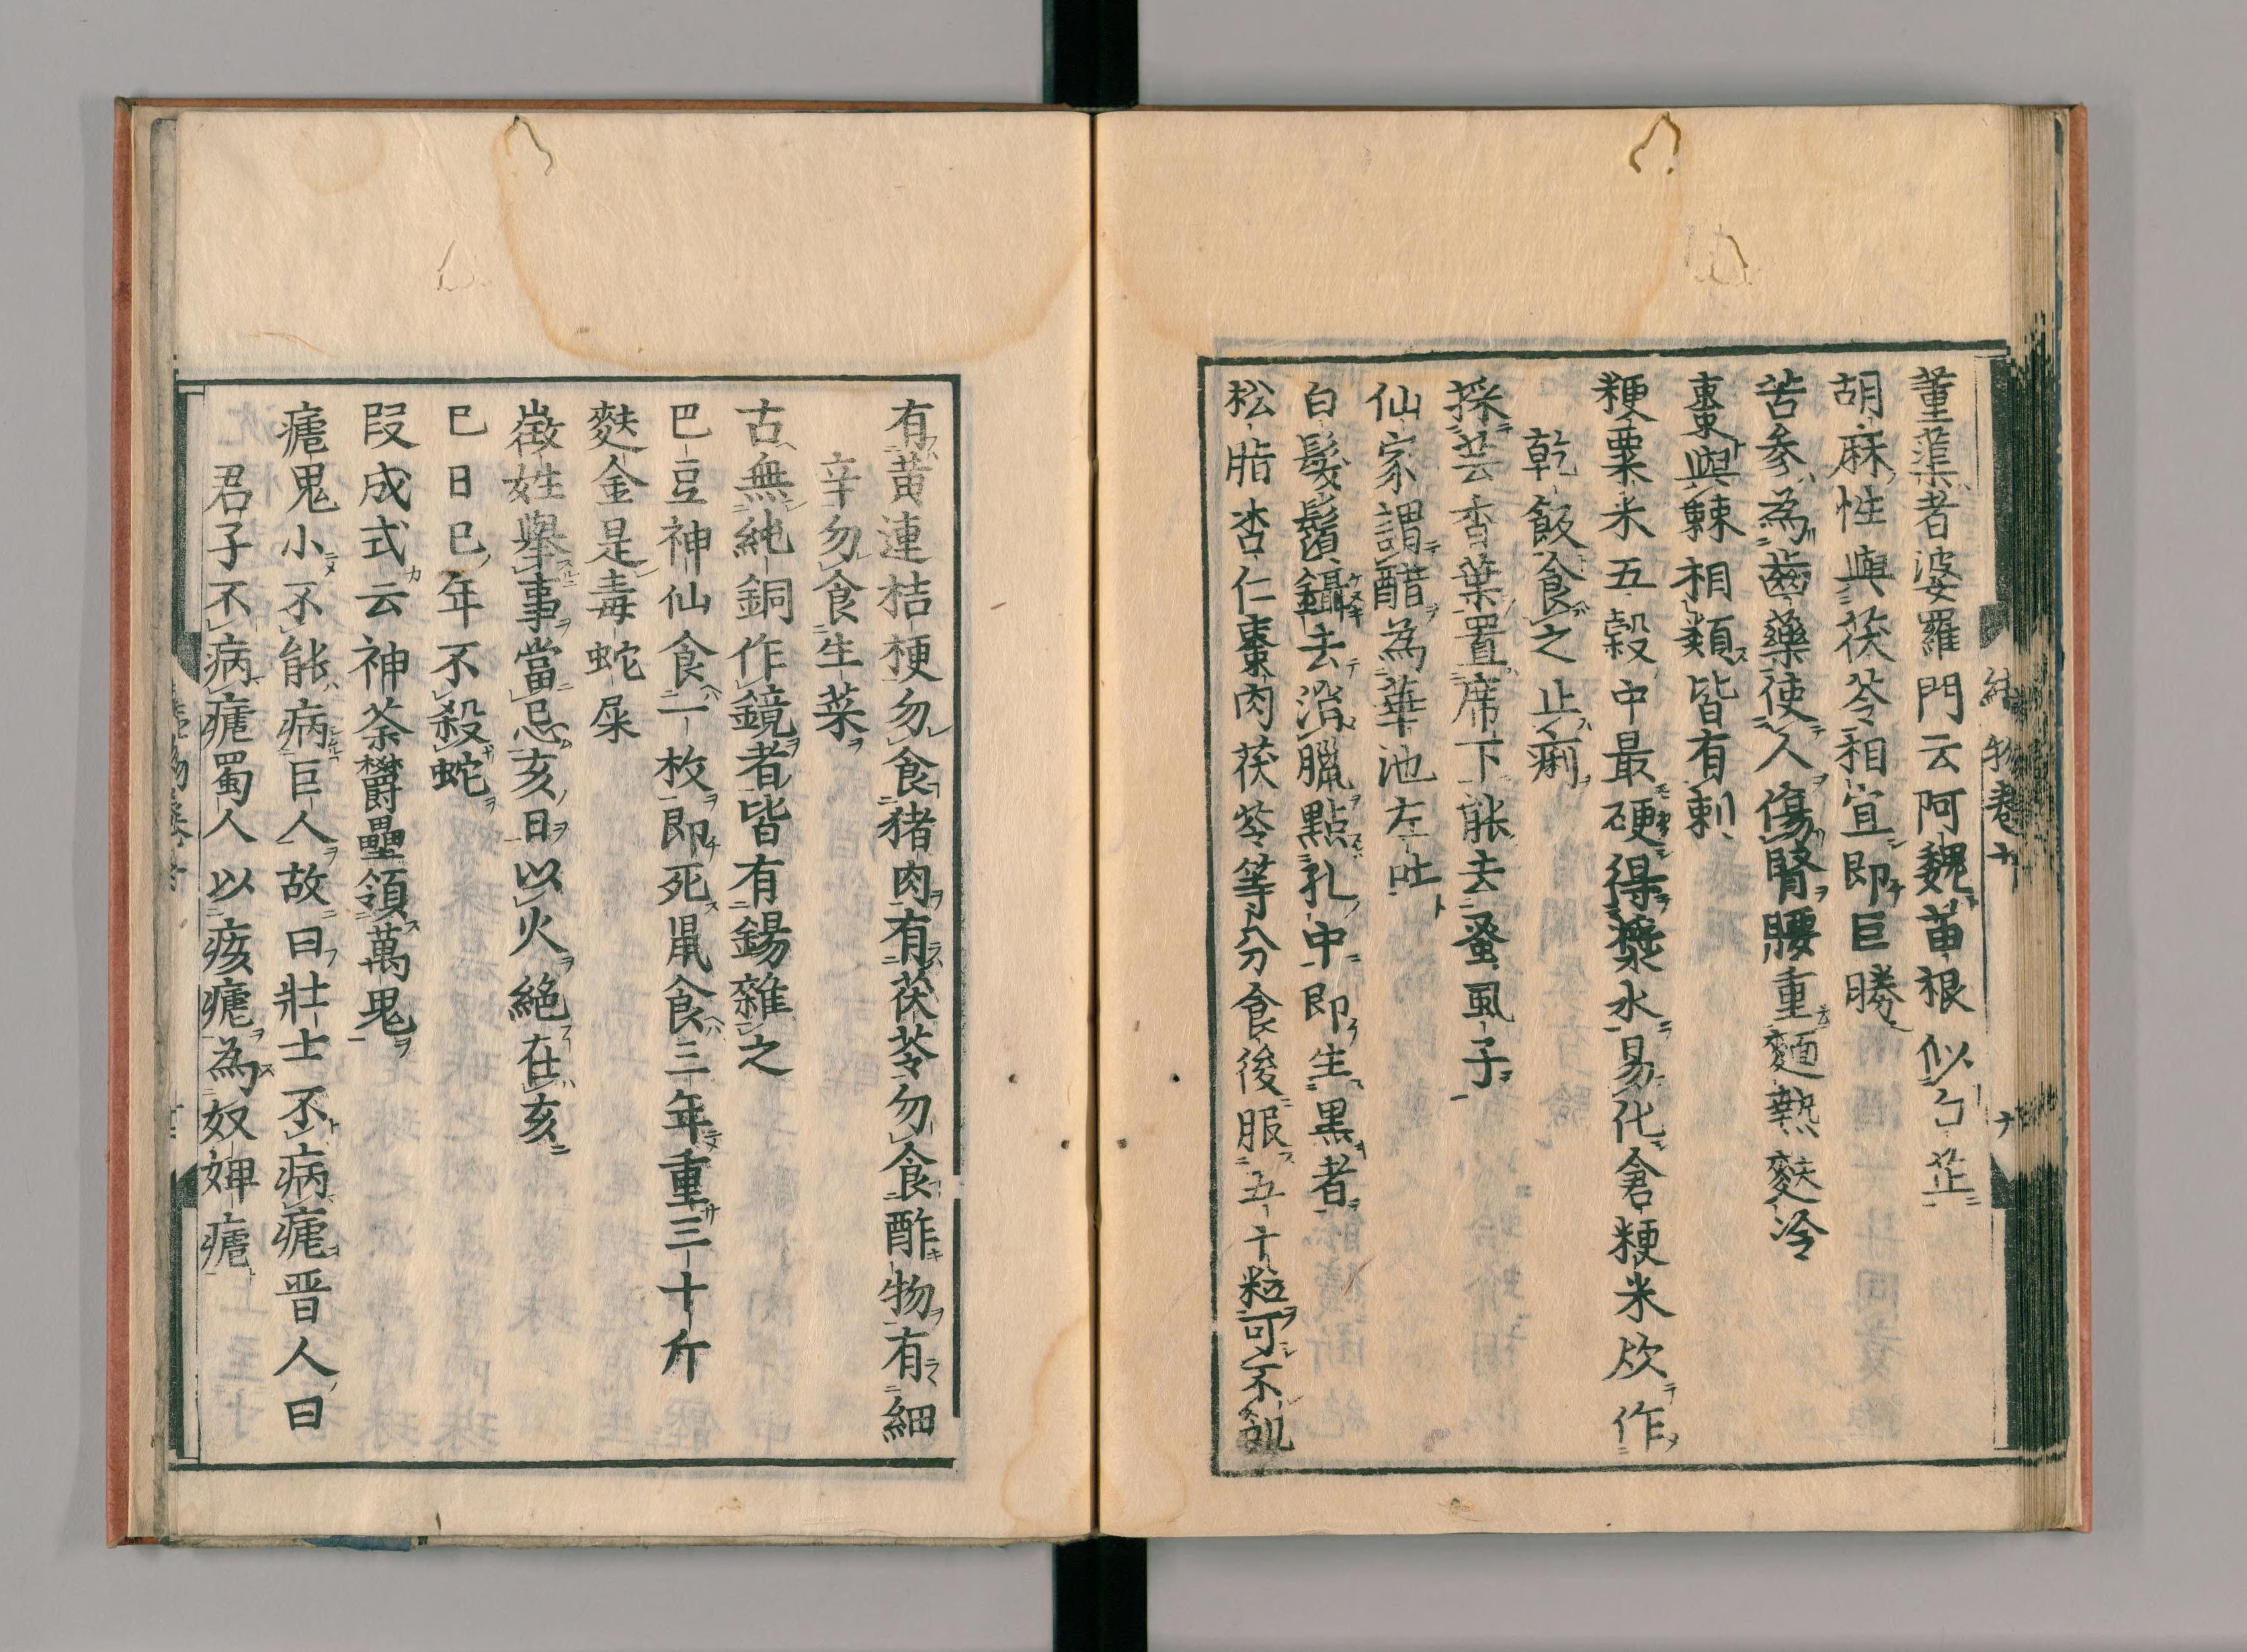 薫蕖者婆羅門云阿魏苗根似白芷
胡麻性與茯苓相宜即巨勝
苦參為齒藥使人傷腎腰重麵熱麩冷
棗與棘相類皆有刺
粳粟米五穀中最硬得漿水易化倉粳米炊作
乾飯食之止痢
採芸香葉置席下能去蚤虱子
仙家謂醋為華池左吐
白髮鬚鑷去消臘點乳中即生黒者
松脂杏仁棗肉茯苓等分食後服五十粒可不飢
有黄連桔梗勿食猪肉有茯苓勿食酢物有細
辛勿食生菜
古無純銅作鏡者皆有錫雜之
巴豆神仙食一枚即死鼠食三年重三十斤
麩金是毒蛇屎
徴姓舉事當忌亥日以火絶在亥
巳日巳年不殺蛇
段成式云神荼欝壘領萬鬼
瘧鬼小不能病巨人故曰壯士不病瘧晋人曰
君子不病瘧蜀人以痎瘧為奴婢瘧